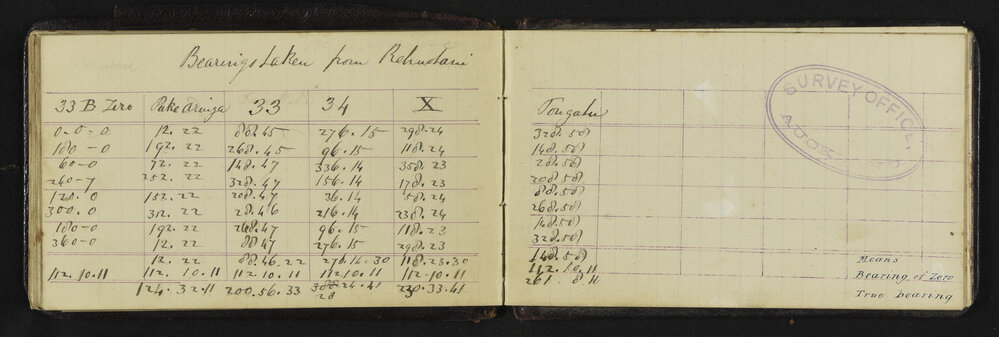 Bearings taken from Rehuotani
33 B Zero Puke Aruiga 33 34 X Tongatu
0-0-0 12.22 88.45 276.15 298.24 328.58
180-0 192.22 268.45 96.15 118.24 148.58
60-0 72.22 148.47 336.14 358.23 28.58
240-7 252.22 328.47 156.14 178.23 208.58
120.0 132.22 208.47 36.14 58.24 88.58
300.0 312.22 28.46 216.14 238.24 268.58
180-0 192.22 268.47 96.15 118.23 148.58
360-0 12.22 88.47 276.15 298.23 328.58
12.22 88.46.22 276.14.30 118.23.30 148.58 Means
112.10.11 112.10.11 112.10.11 112.10.11 112.10.11 112.10.11 Bearing of Zero
124.32.11 200.56.33 24.41 230.33.41 261.8.11 True bearing
28
SURVEY OFFICE,